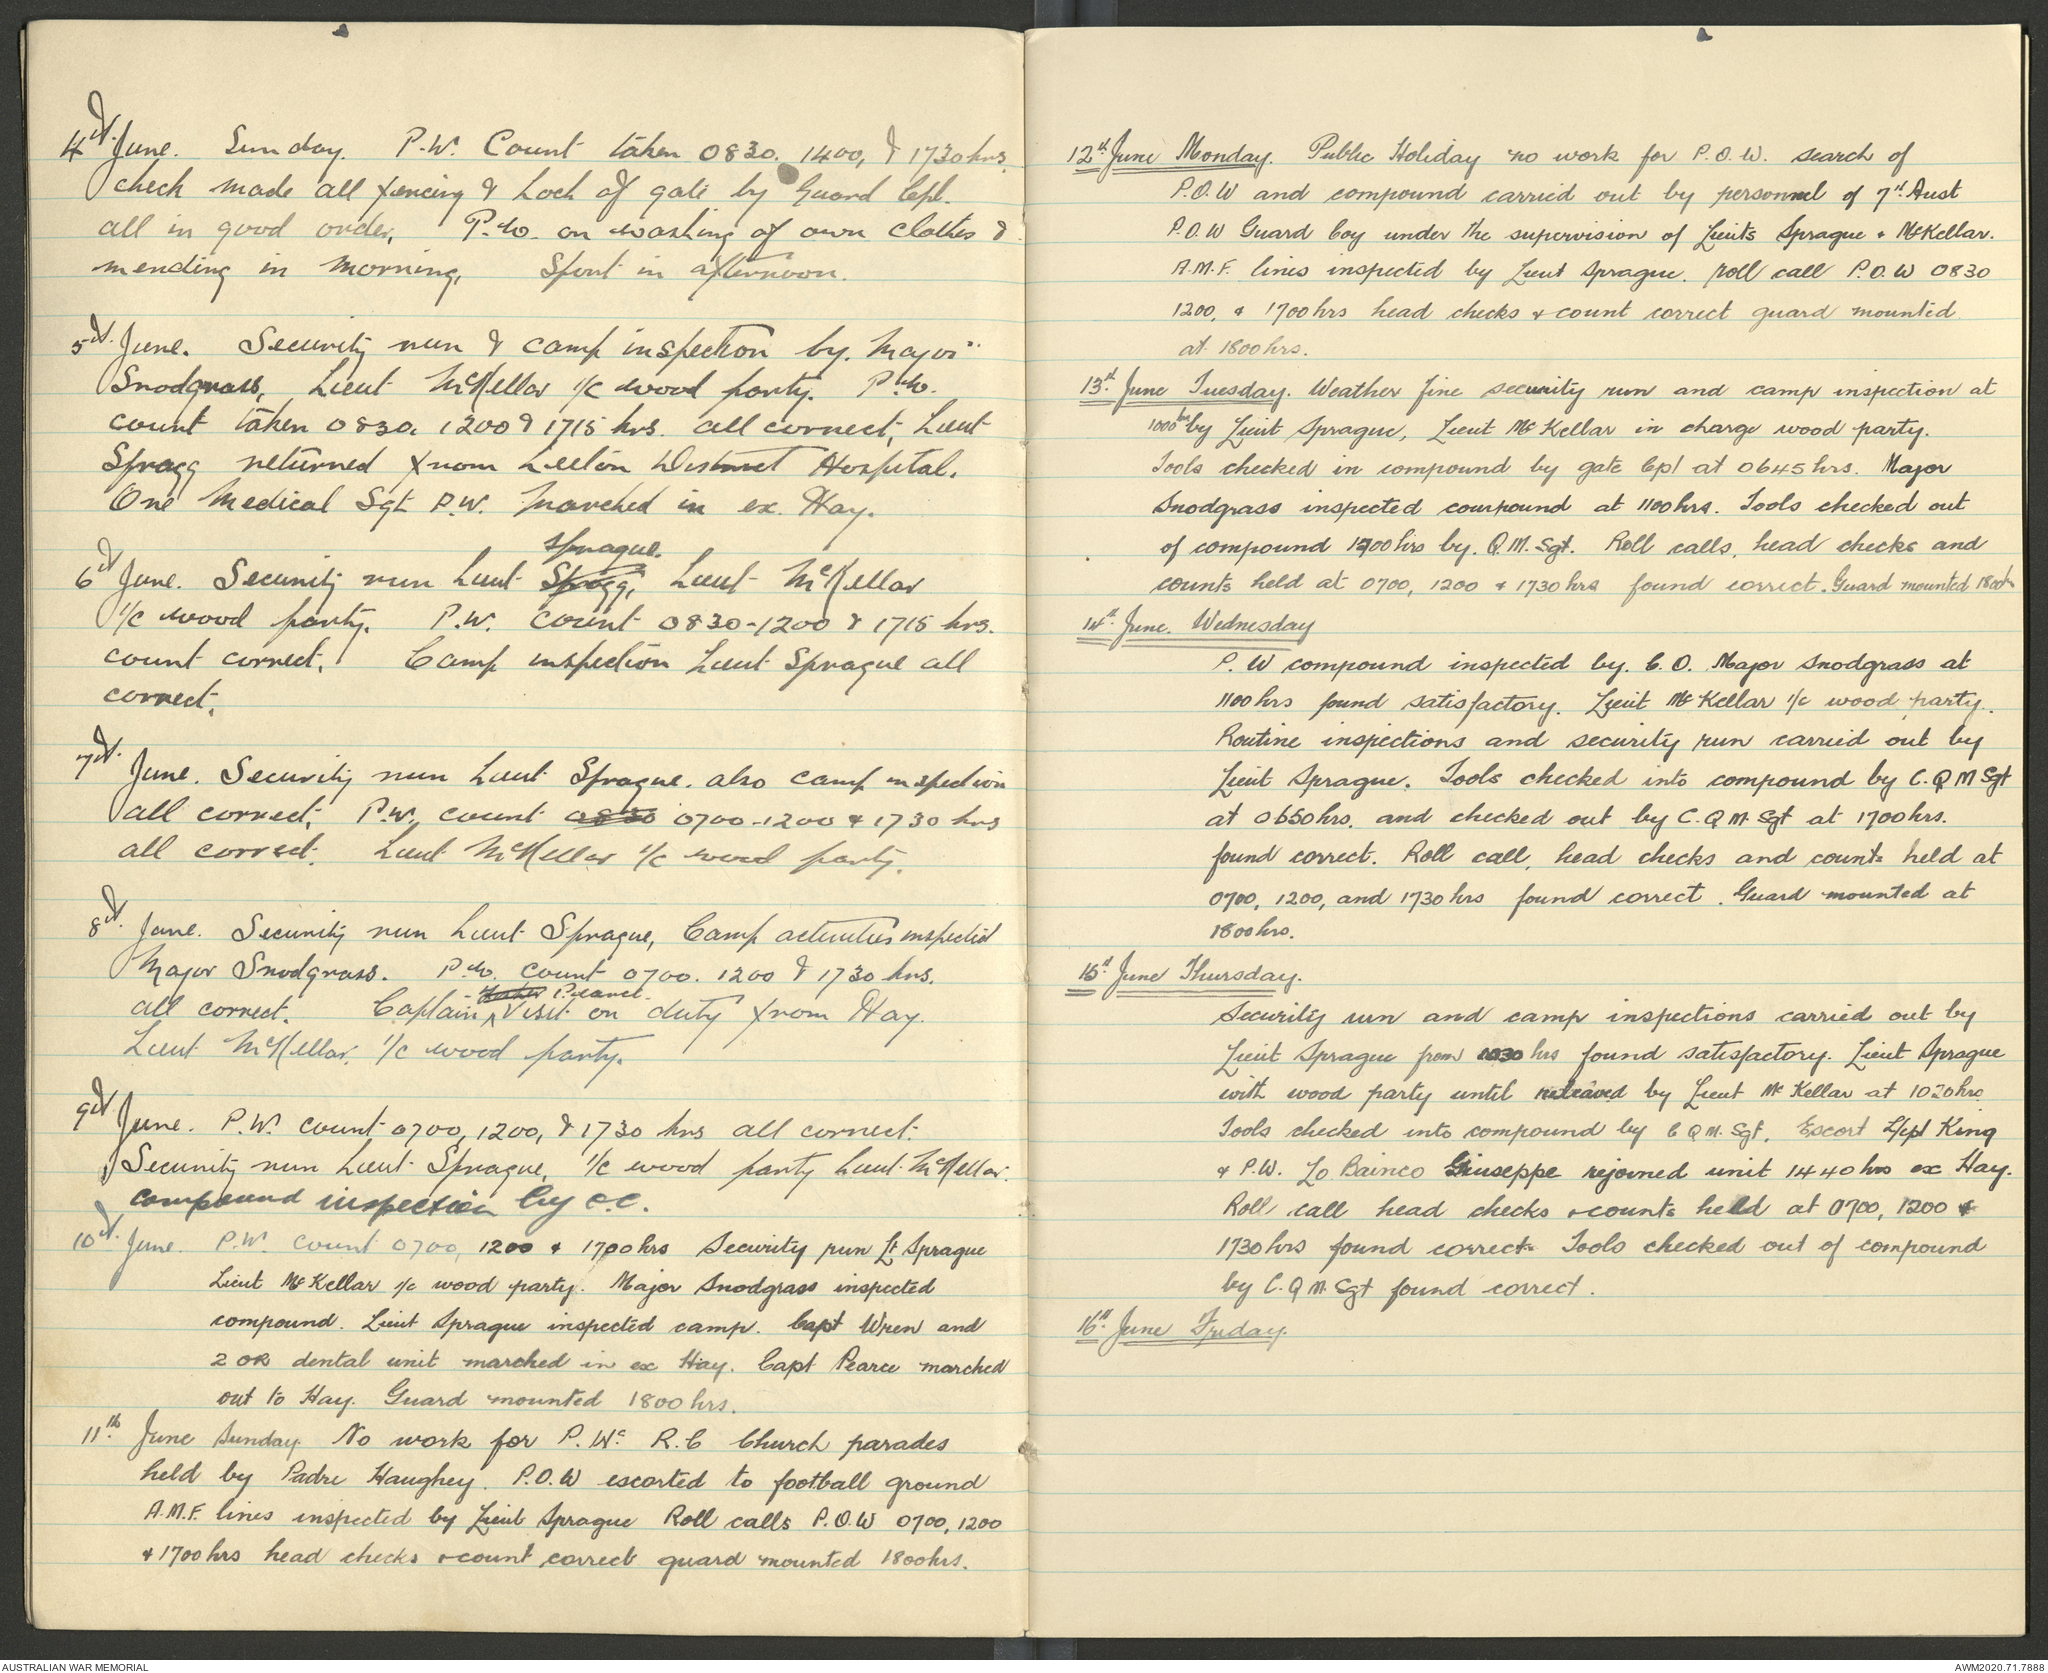 4th June. Sunday. P.W. Count taken 0830. 1400, & 1730 hrs.
check made all fencing & Lock of gate by Guard Cpl.
all in good order, P.W. on washing of own clothes &
mending in morning, Sport in afternoon.
5th June. Security run & camp inspection by. Major
Snodgrass, Lieut McKellar i/c wood party. P.W.
count taken 0830. 1200 & 1715 hrs. all correct, Lieut
Spragg returned from Leeton District Hospital.
One Medical Sgt P.W. Marched in ex. Hay.
Sprague.
6th June. Security run Lieut Spragg, Lieut McKellar
i/c wood party. P.W. Count 0830-1200 & 1715 hrs.
count correct, Camp inspection Lieut Sprague all
correct.
7th June. Security run Lieut Sprague. also camp inspection
all correct, P.W. count 0830 0700-1200 & 1730 hrs
all correct. Lieut McKellar i/c wood party.
8th June. Security run Lieut Sprague, Camp activities inspected
Major Snodgrass. P.W. count 0700. 1200 & 1730 hrs.
Pearce.
all correct. Captain ^ Visit on duty from Hay.
Lieut McKellar, i/c wood party.
9th June. P.W. count 0700, 1200, & 1730 hrs all correct.
Security run Lieut Sprague, i/c wood party Lieut McKellar.
compound inspection by O.C.
10th June. P.W. count 0700, 1200 & 1700 hrs Security run Lt Sprague
Lieut McKellar i/c wood party. Major Snodgrass inspected
compound. Lieut Sprague inspected camp. Capt Wren and
2 OR dental unit marched in ex Hay. Capt Pearce marched
out to Hay. Guard mounted 1800 hrs.
11th June Sunday No work for P.Ws R.C Church parades
held by Padre Haughey. P.O.W escorted to football ground
A.M.F. lines inspected by Lieut Sprague Roll calls P.O.W 0700, 1200
& 1700 hrs head checks & count correct guard mounted 1800 hrs.
12th June Monday. Public Holiday no work for P.O.W. search of
P.O.W and compound carried out by personnel of 7th Aust
P.O.W Guard Coy under the supervision of Lieuts Sprague & McKellar.
A.M.F. lines inspected by Lieut Sprague. roll call P.O.W 0830
1200, & 1700 hrs head checks & count correct guard mounted
at 1800 hrs.
13th June Tuesday. Weather fine security run and camp inspection at
1000 hrs by Lieut Sprague, Lieut McKellar in charge wood party.
Tools checked in compound by gate Cpl at 0645 hrs. Major
Snodgrass inspected compound at 1100 hrs. Tools checked out
of compound 1700 hrs by. Q.M. Sgt. Roll calls, head checks and
counts held at 0700, 1200 & 1730 hrs found correct. Guard mounted 1800 hrs
14th June. Wednesday
P.W compound inspected by. C.O. Major Snodgrass at
1100 hrs found satisfactory. Lieut McKellar i/c wood party.
Routine inspections and security run carried out by
Lieut Sprague. Tools checked into compound by C.Q M Sgt
at 0650 hrs. and checked out by C.Q M Sgt at 1700 hrs.
found correct. Roll call, head checks and counts held at
0700, 1200, and 1730 hrs found correct. Guard mounted at
1800 hrs.
15th June Thursday.
Security run and camp inspections carried out by
Lieut Sprague from 1030 hrs found satisfactory. Lieut Sprague
with wood party until releaved by Lieut McKellar at 1020 hrs
Tools checked into compound by C Q M. Sgt. Escort L/cpl King
& P.W. Lo Bainco Giuseppe rejoined unit 1440 hrs ex Hay.
Roll call head checks & counts held at 0700, 1200 &
1730 hrs found correct. Tools checked out of compound
by C.Q M. Sgt found correct.
16th June Friday.
AUSTRALIAN WAR MEMORIAL
AWM2020.71.7888